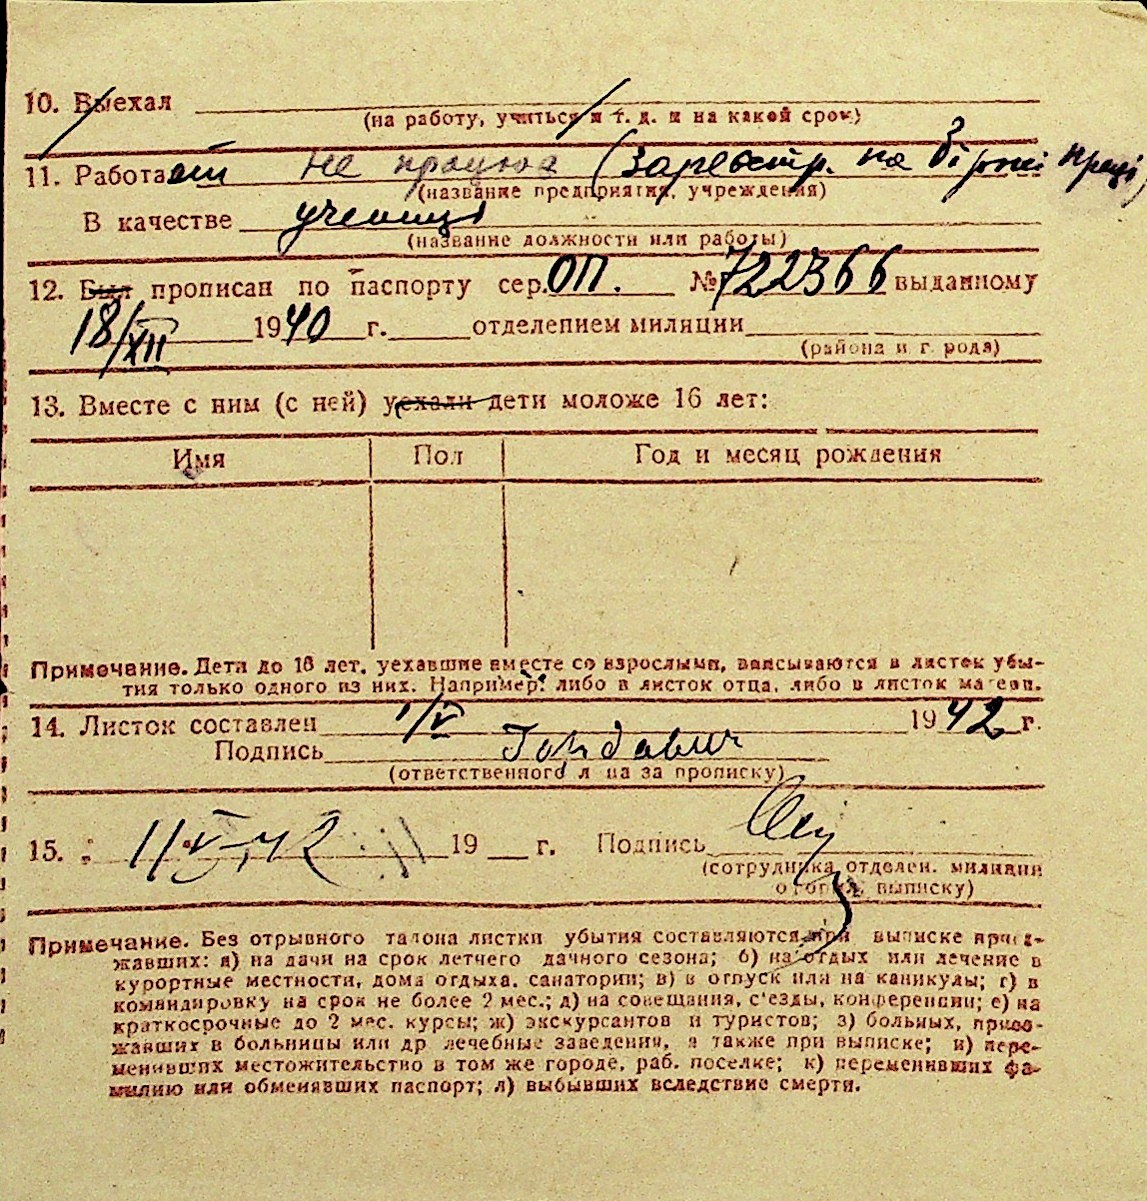 10. Выехал
(на работу, учиться и т. д. и на какой срок)
11. Работает не працює (зареєстр. на біржі праці)
(название предприятия, учреждения)
В качестве учениці
(название должности или работы)
12. Был прописан по паспорту сер. ОП. № 722366 выданному
18/XII 1940 г. отделением милиции
(района и города)
13. Вместе с ним (с ней) уехали дети моложе 16 лет:
Имя Пол Год и месяц рождения
Примечание. Дети до 16 лет, уехавшие вместе со взрослыми, вписываются в листок убы-
тия только одного из них. Например: либо в листок отца, либо в листок матери.
14. Листок составлен 1/V 1942 г.
Подпись
(ответственного л ца за прописку)
15. 11.V.42 19 г. Подпись
(сотрудника отделен. милиции
о выписку)
Примечание. Без отрывного талона листки убытия составляются при выписке приез-
жавших: а) на дачи на срок летчего дачного сезона; б) на отдых или лечение в
курортные местности, дома отдыха, санатории; в) в отпуск или на каникулы; г) в
командировку на срок не более 2 мес.; д) на совещания, с'езды, конференции; е) на
краткосрочные до 2 мес. курсы; ж) экскурсантов и туристов; з) больных, приез-
жавших в больницы или др лечебные заведения, а также при выписке; и) пере-
менивших местожительство в том же городе, раб. поселке; к) переменивших фа-
милию или обменявших паспорт; л) выбывших вследствие смерти.